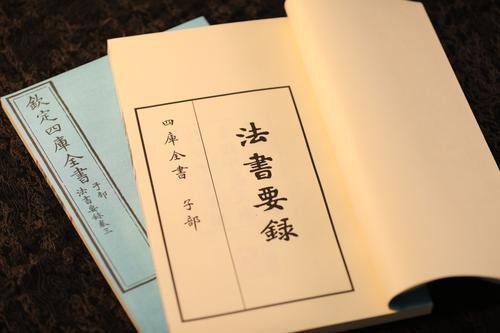 欽定四庫全書
子部
法書要錄卷三
法書要録
四庫全書 子部